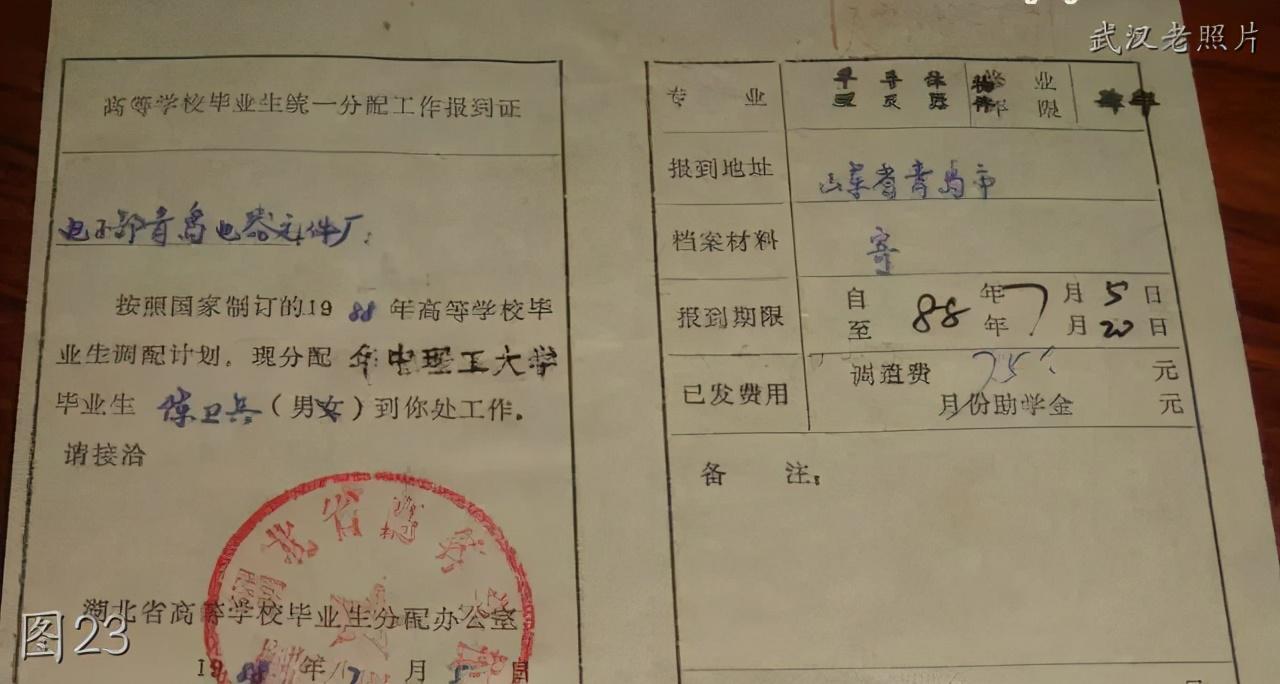 武汉老照片
高等学校毕业生统一分配工作报到证
电子部青岛电器元件厂:
按照国家制订的1988年高等学校毕
业生调配计划,现分配 华中理工大学
毕业生 卫兵(男女)到你处工作。
请接洽
湖北省
湖北省高等学校毕业生分配办公室
1988年7月5日
图23
专 业
半导体
业
年限
年
报到地址
山东省青岛市
档案材料
寄
报到期限
自 88 年7月5日
至 年7月20日
已发费用
调遣费 75 元
月份助学金 元
备 注: